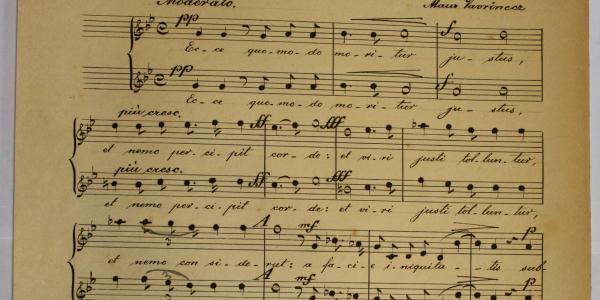 Moderato. Maur. Vavrinecz
pp f
Ec - ce quo - mo - do mo - ri - tur ju - stus,
pp f
Ec - ce quo - mo - do mo - ri - tur ju - stus,
più cresc. ff fff
et nemo per - ci - pit cor - de: et vi - ri justi tol - lun - tur,
più cresc. ff fff
et nemo per - ci - pit cor - de: et vi - ri justi tol - lun - tur,
3 mf p
et nemo con si - de - rat: a fa - ci - e i - niquita - tis sub -
3 mf p